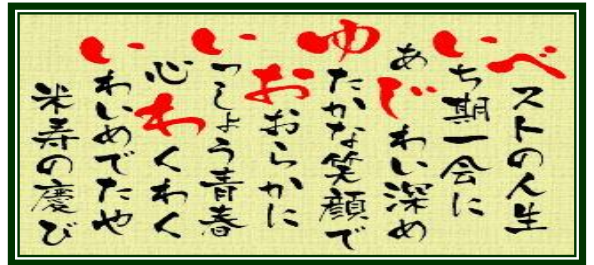 ベストの人生
いち期一会に
あじわい深め
ゆたかな笑顔で
おおらかに
いっしょう青春
心わくわく
いわいめでたや
米寿の慶び